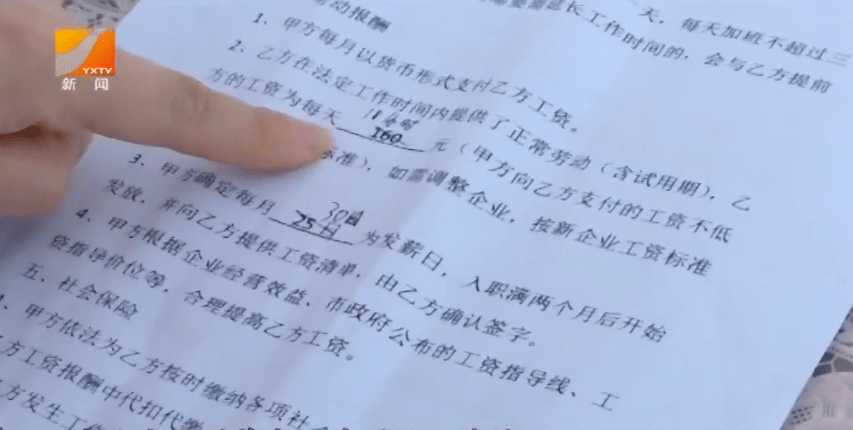 YXTV
新闻
天，每天加班不超过三
延长工作时间的，会与乙方提前
动报酬
1、甲方每月以货币形式支付乙方工资。
2、乙方在法定工作时间内提供了正常劳动（含试用期），乙
方的工资为每天160元（甲方向乙方支付的工资不低
标准），如需调整企业，按新企业工资标准
3、甲方确定每月30日
25日为发薪日，入职满两个月后开始
发放，并向乙方提供工资清单，由乙方确认签字。
4、甲方根据企业经营效益、市政府公布的工资指导线、工
资指导价位等，合理提高乙方工资。
五、社会保险
甲方依法为乙方按时缴纳各项社会
方工资报酬中代扣代缴
方发生工